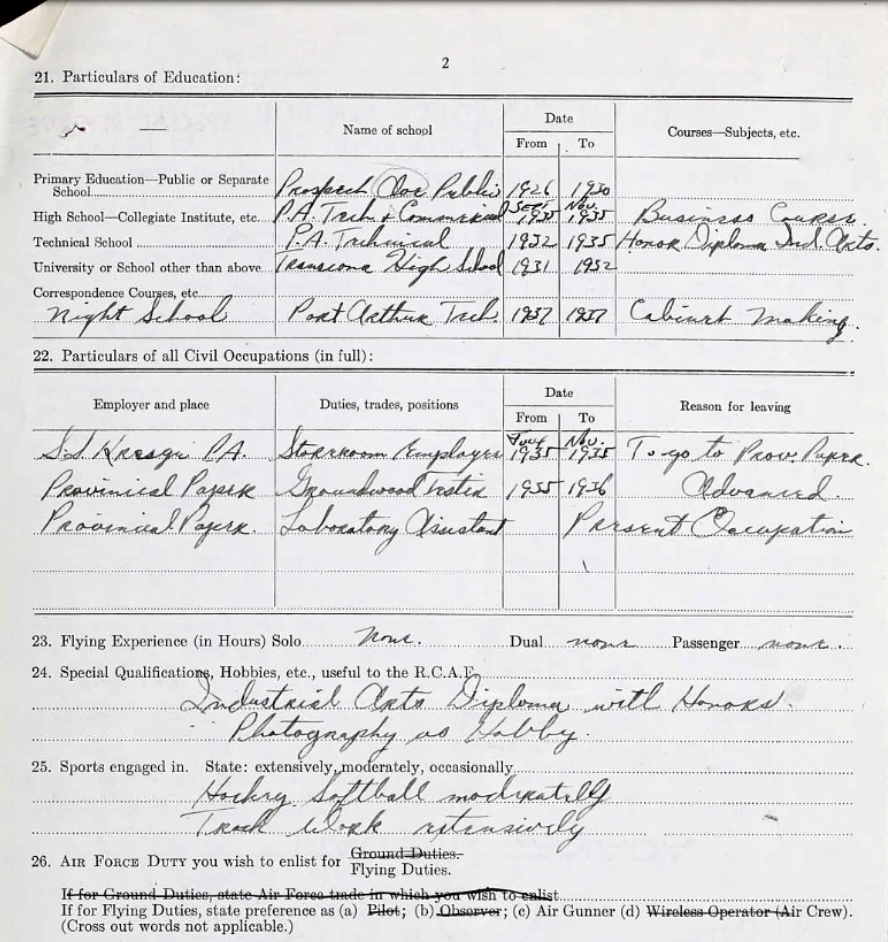 2
21. Particulars of Education:
Name of school Date Courses—Subjects, etc.
From To
Primary Education—Public or Separate
School Prospect Ave Public 1926 1930
High School—Collegiate Institute, etc. P.A. Tech & Commercial Sept. 1935 Nov. 1935 Business Course.
Technical School P.A. Technical 1932 1935 Honor Diploma Ind. Arts.
University or School other than above Transcona High School 1931 1932
Correspondence Courses, etc.
Night School Port Arthur Tech. 1937 1937 Cabinet making.
22. Particulars of all Civil Occupations (in full):
Employer and place Duties, trades, positions Date Reason for leaving
From To
S.S. Kresge P.A. Storeroom Employee 1935 Nov. 1935 To go to Prov. Paper.
Provincial Paper Groundwood Tester 1935 1936 Advanced.
Provincial Paper. Laboratory Assistant Present Occupation
23. Flying Experience (in Hours) Solo none. Dual none Passenger none.
24. Special Qualifications, Hobbies, etc., useful to the R.C.A.F.
Industrial Arts Diploma with Honors.
Photography as Hobby.
25. Sports engaged in. State: extensively, moderately, occasionally
Hockey Softball moderately
Track Work extensively
26. AIR FORCE DUTY you wish to enlist for Ground Duties.
Flying Duties.
If for Ground Duties, state Air Force trade in which you wish to enlist
If for Flying Duties, state preference as (a) Pilot; (b) Observer; (c) Air Gunner (d) Wireless Operator (Air Crew).
(Cross out words not applicable.)